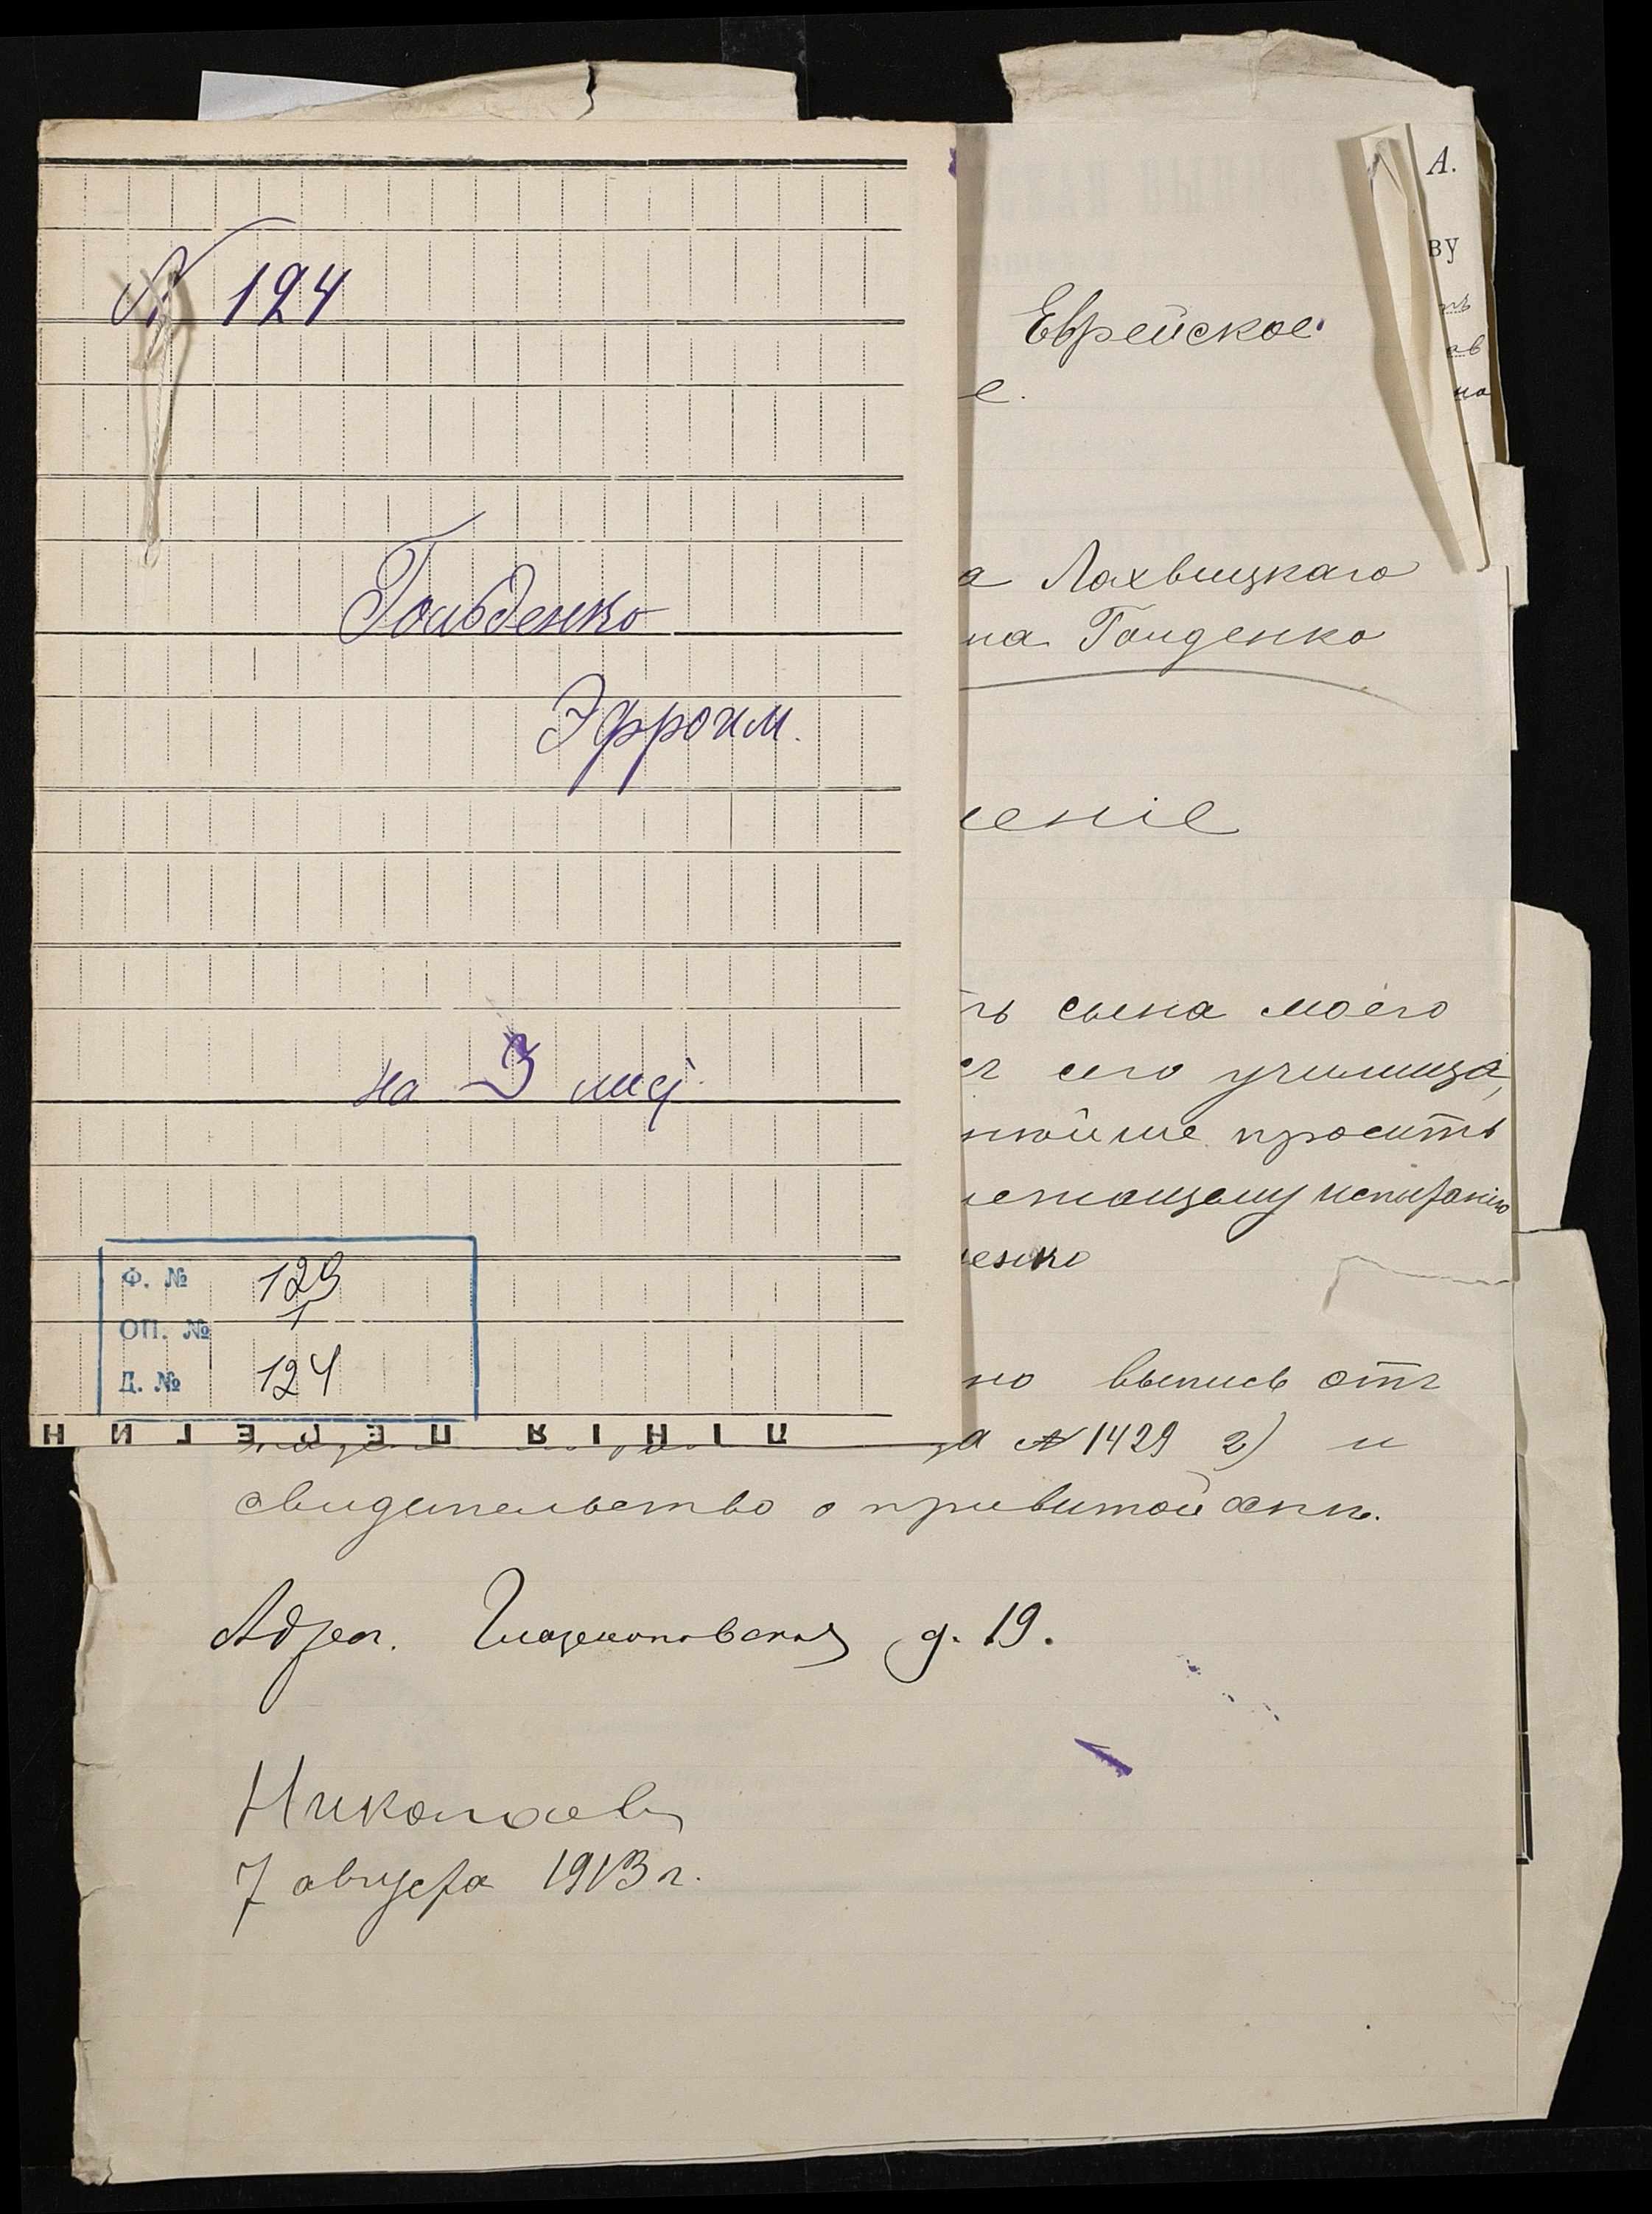 № 124
Гольденко
Эфроим.
на 3 лис.
Ф. № 129
ОП. № 1
Д. № 124
А.
ву
Еврейское
е.
а Лохвицкаго
на Голденко
еніе
ть сына моего
сего училища,
нѣйше просить
испытанію
енко
но выпись отъ
а № 1429 2) и
свидѣтельство о привитой оспѣ.
Адрес. д. 19.
Николаевъ
7 августа 1913 г.